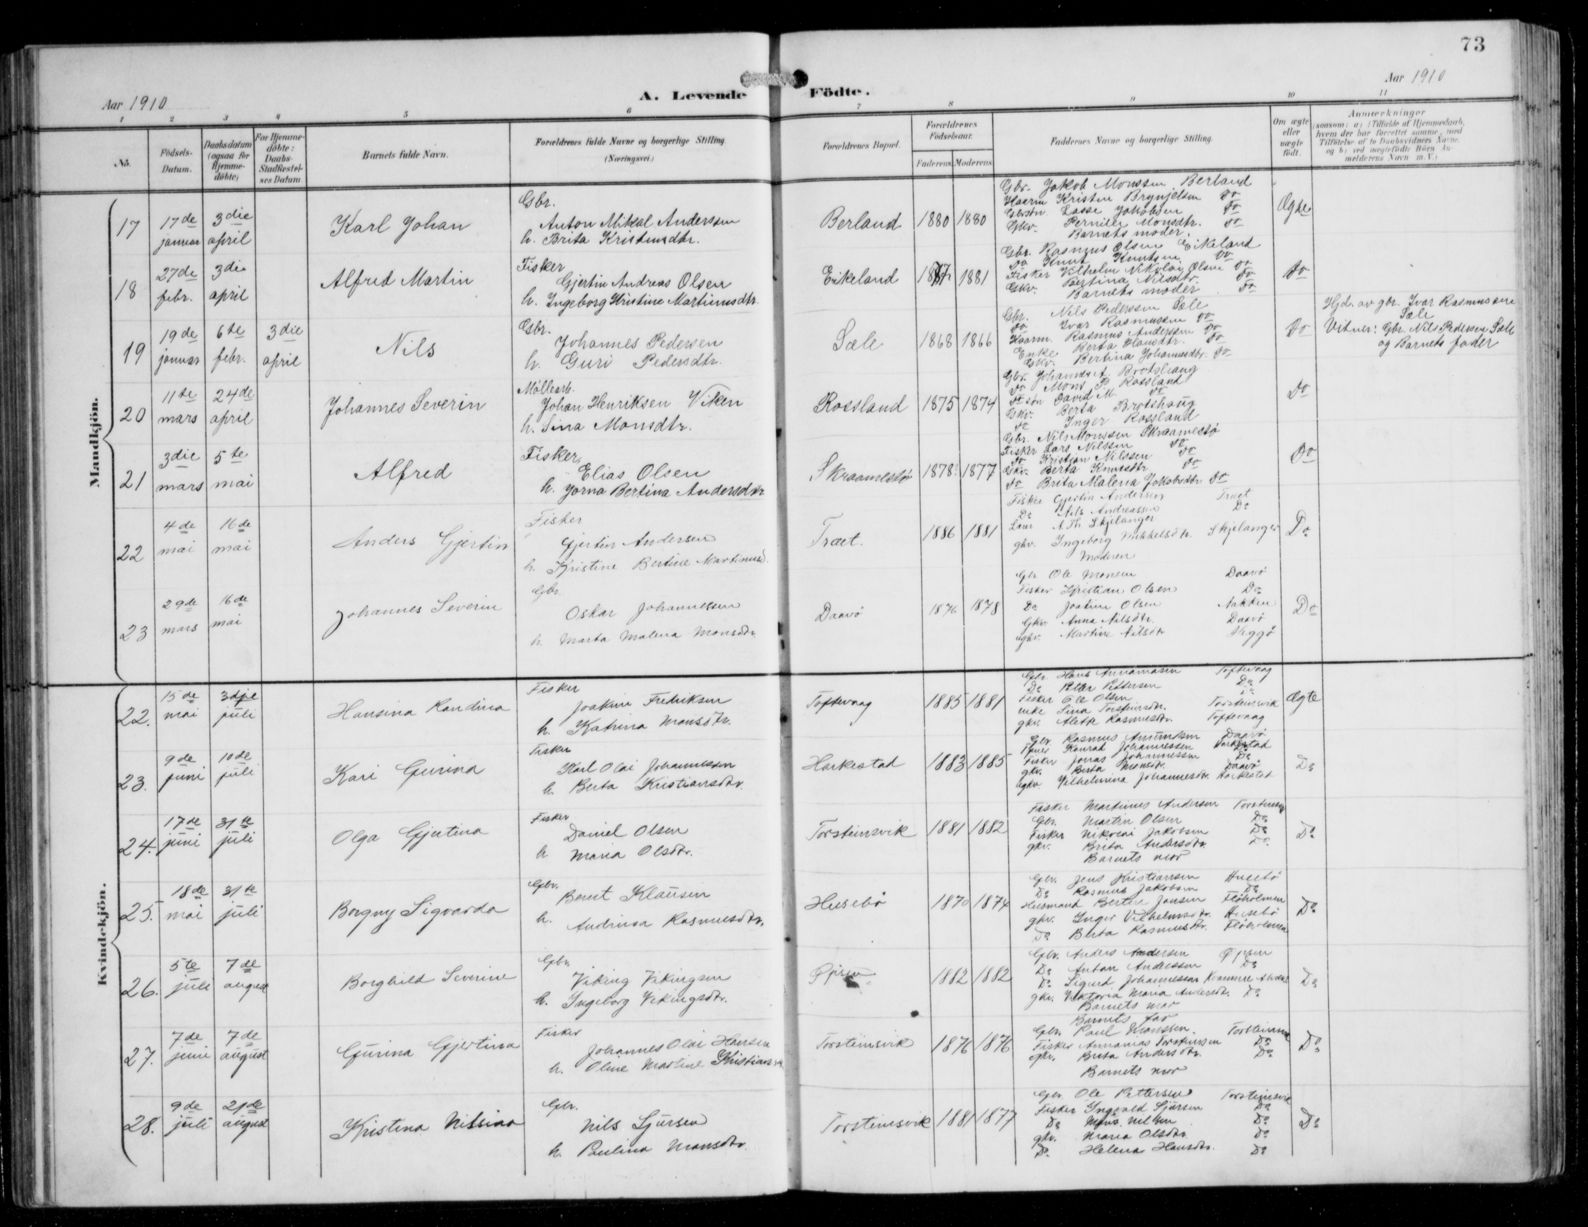 73
Aar 1910
A. Levende Födte.
Aar 1910
1 2 3 4 5 6 7 8 9 10 11
No.
Födsels-Datum.
Daabsdatum (ogsaa for Hjemmedöbte)
For Hjemmedöbte: Daabs-Stadfestelses Datum
Barnets fulde Navn.
Forældrenes fulde Navne og borgerlige Stilling (Næringsvei)
Forældrenes Bopæl.
Forældrenes Födselsaar.
Faderens Moderens
Faddernes Navne og borgerlige Stilling.
Om ægte eller uægte födt.
Anmerkninger
Mandkjön.
17 17de januar 3die april Karl Johan
Gbr.
Anton Mikal Anderssen
h. Brita Kristensdtr.
Berland 1880 1880
Gbr. Jakob Monssen Berland
Kaarm. Kristen Brynjelsen Do
Gbrsön Lasse Jakobsen Do
Gkv. Pernille Monsdtr. Do
Barnets moder.
Ægte
18 27de febr. 3die april Alfred Martin
Fisker
Gjertin Andreas Olsen
h. Ingeborg Kristine Martinusdtr.
Eikeland 1881
Gbr. Rasmus Olsen Eikeland
Do Knut Knutsen Do
Fisker Vilhelm Nikolay Olsen Do
Gkv. Bertina Nilsdtr. Do
Barnets moder Do
Do
19 19de januar 6te febr. 3die april Nils
Gbr.
Johannes Pedersen
h. Guri Pedersdtr.
Sæle 1868 1866
Gbr. Nils Pederssen Sæle
Do Ivar Rasmussen Do
Kaarm. Rasmus Anderssen Do
Enke Berta Hansdtr. Do
Gkv. Bertina Johannesdtr. Do
Do
Hjd. av gbr. Ivar Rasmussen Sæle
Vitner: Gbr. Nils Pedersen Sæle
og Barnets fader
20 11te mars 24de april Johannes Severin
Möllearb.
Johan Henriksen Viken
h. Sina Monsdtr.
Rossland 1875 1874
Gbr. Johannes A. Brotshaug
Do Mons P. Rossland
Do sön David M. Do
Gkv. Berta Brotshaug
Do Inger Rossland
Do
21 3die mars 5te mai Alfred
Fisker
Elias Olsen
h. Jorna Bertina Andersdtr
Skraamestö 1878 1877
Gbr. Nils Monssen Skraamestö
Fisker Lars Nilssen Do
Do Kristian Nilssen Do
Gkv. Berta Knutsdtr. Do
Do Brita Malena Jakobsdtr. Do
Do
22 4de mai 16de mai Anders Gjertin
Fisker
Gjertin Andersen
h. Kristine Bertine Martinusd.
Træt. 1886 1881
Fisker Gjertin Andersen Træt
Do Nils Andreassen Do
A. Th. Skjelanger
gkv. Ingeborg Mikkelsdtr. Skjelanger
Moderen
Do
23 29de mars 16de mai Johannes Severin
Gbr.
Oskar Johannesen
h. Marta Malena Mansdtr.
Daavö 1876 1878
Gbr Ole Monsen Daavö
Fisker Kristian Olsen Do
Do Joakim Olsen Nakken
Gkv. Anna Nilsdtr. Daavö
Ugkv. Martine Nilsdtr
Do
Kvindekjön.
22. 15de mai 3dje juli Hansina Randina
Fisker
Joakim Fredriksen
h. Katrina Monsdtr.
Toftevaag 1885 1881
Gbr Hans Annaniasen Toftevaag
Do Peter Pettersen Do
Fisker Ole Olsen Do
enke Sina Torsteinsdr. Torsteinsvik
gkv. Aletta Rasmusdr. Toftevaag
Ægte
23. 9de juni 10de juli Kari Gurina
Fisker
Karl Olai Johannesen
h. Berta Kristiansdtr.
Harkestad 1883 1885
Gbr. Rasmus Daavö
Konrad Johannessen Harkestad
Fisker Jonas Johannessen Do
gkv. Berta Monsdtr. Daavö
ugkv. Vilhelmina Johannesdtr. Harkestad
Do
24. 17de juni 31te juli Olga Gjertina
Fisker
Daniel Olsen
h. Maria Olsdtr.
Torsteinsvik 1881 1882
Fisker Martinus Andersen Torsteinsvik
Gbr. Martin Olsen Do
Fisker Nikolai Jakobsen Do
gkv. Brita Andersdtr. Do
Barnets mor
Do
25. 18de mai 31te juli Borgny Sigvarda
Gbr.
Berent Klausen
h. Andrina Rasmusdtr.
Husebö 1870 1874
Gbr. Jens Kristiansen Husebö
Do Rasmus Jakobsen Do
Husmand Bertin Jansen Flöholmen
gkv. Inger Vilhelmsdr. Husebö
Do Berta Rasmusdtr. Flöholmen
Do
26. 5te juli 7de august Borghild Severine
Gbr.
Viking Vikingsen
h. Ingeborg Vikingsdtr.
Öpsen 1882 1882
Gbr. Anders Andersen
Do Anton Andersen Do
Do Sigurd Johannessen
gkv. Viktoria Maria Andersdtr. Do
Barnets mor
Do
27. 7de juni 7de august Gurina Gjertina
Fisker
Johannes Olai Hansen
h. Oline Martine Kristiansd.
Torsteinsvik 1876 1876
Barnets far
Gbr. Paul Monssen. Torsteinsvik
Fisker Annanias Torsteinsen Do
gkv. Brita Andersdtr. Do
Barnets mor
Do
28. 9de juli 21de august Kristina Nilsina
Gbr.
Nils Sjursen
h. Paulina Monsdtr.
Torsteinsvik 1881 1877
Gbr Ole Pettersen Torsteinsvik
Fisker Ingvald Sjursen Do
Do Mons Nilsen Do
gkv. Maria Olsdtr. Do
Do Helena Hansdtr. Do
Do